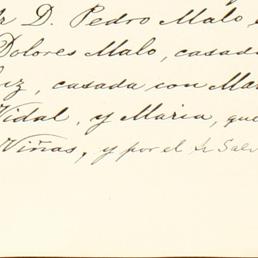 Sr D. Pedro Malo
Dolores Malo, casada
casada con Mar
Vidal, y Maria, que
Viñas, y por el Sr Salv